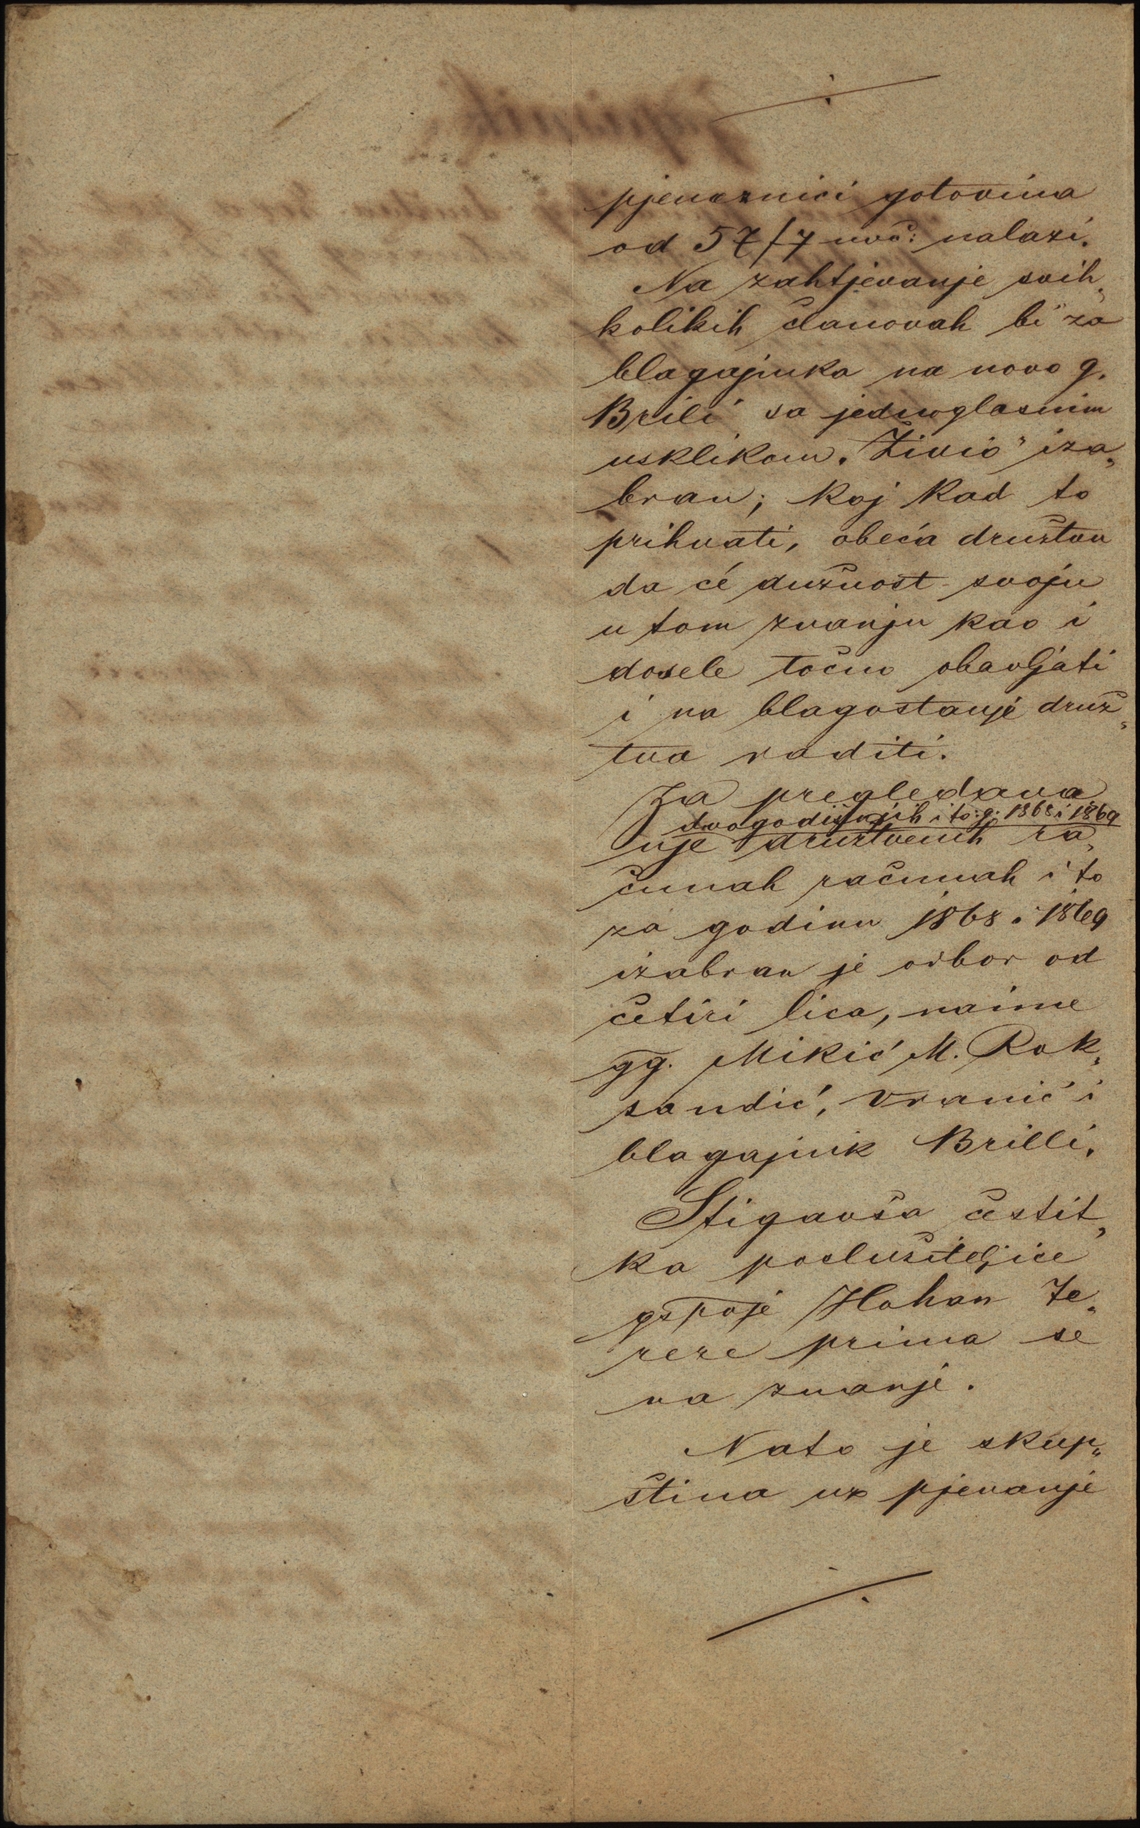 pjeneznici gotovina
od 57/7 novč: nalazi.
Na zahtjevanje svih„
kolikih članovah bi za
blagajnika na novo g.
Brili sa jednoglasnim
usklikom „Živio" iza„
bran; koj kad to
prihvati, obeća družtvu
da će dužnost svoju
u tom zvanju kao i
dosele točno obavljati
i na blagostanje druž„
tva raditi.
Za pregledava
dvogodišnjih i to: g: 1868 i 1869
nje družtvenih ra„
čunah računah i to
za godinu 1868 i 1869
izabran je odbor od
četiri lica, naime
gg. Mikić M. Rok„
sandić, Vranić i
blagajnik Brilli.
Stigavša čestit„
ka poslušiteljice
gspoje Hohan Te„
reze prima se
na znanje.
Nato je skup„
ština uz pjevanje